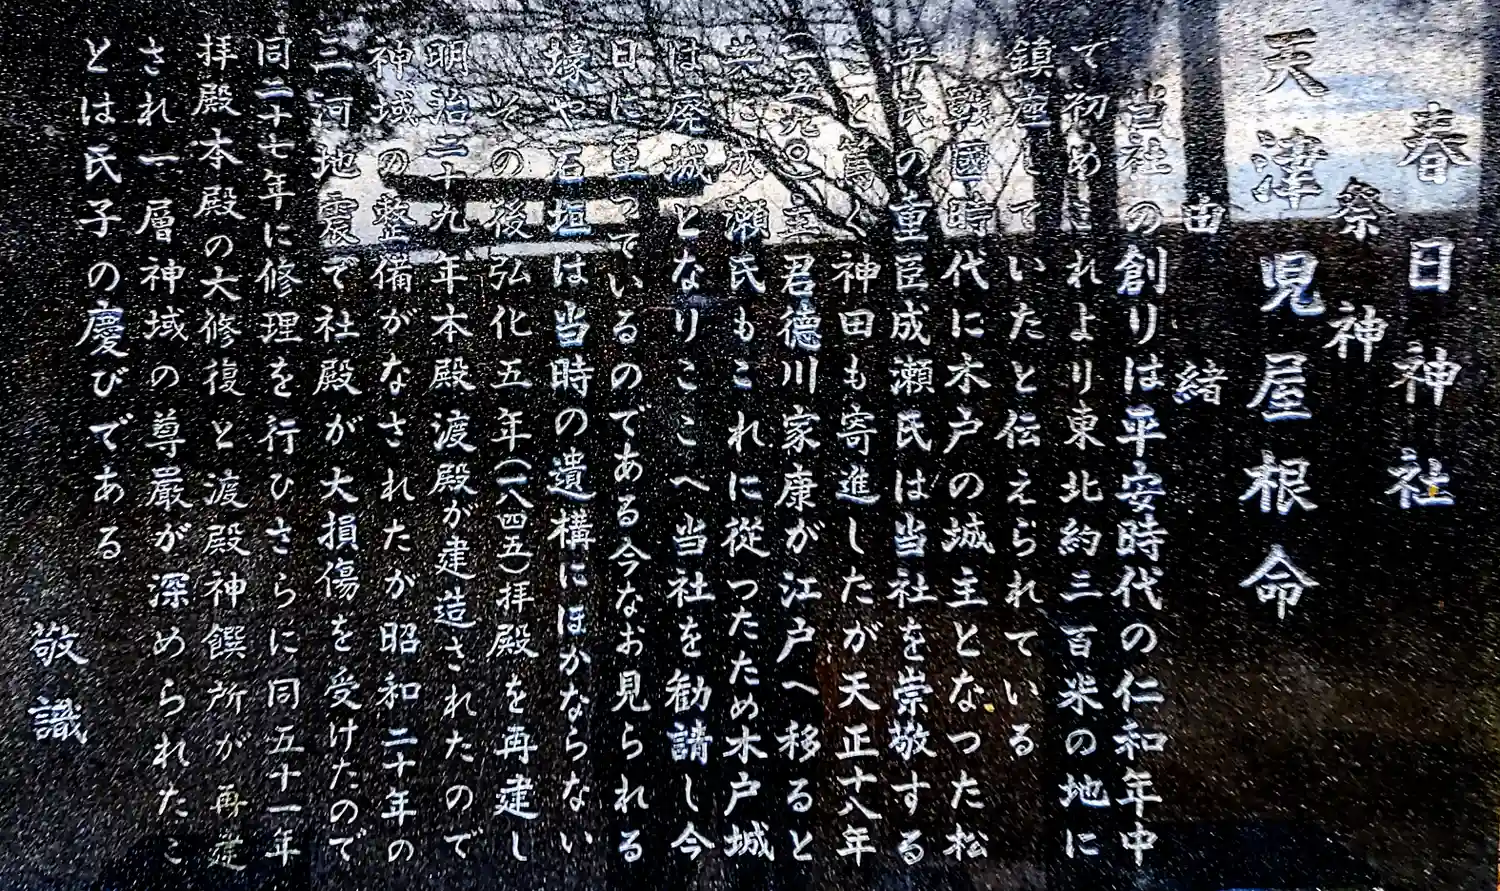 春日神社
祭神
天津児屋根命
由緒
当社の創りは平安時代の仁和年中
で初めこれより東北約三百米の地に
鎮座していたと伝えられている
戦國時代に木戸の城主となった松
平氏の重臣成瀬氏は当社を崇敬する
こと篤く神田も寄進したが天正十八年
(一五九〇)主君徳川家康が江戸へ移ると
共に成瀬氏もこれに従つたため木戸城
は廃城となりここへ当社を勧請し今
日に至っているのである今なお見られる
壕や石垣は当時の遺構にほかならない
その後弘化五年(一八四五)拝殿を再建し
明治二十九年本殿渡殿が建造されたので
神域の整備がなされたが昭和二十年の
三河地震で社殿が大損傷を受けたので
同二十七年に修理を行ひさらに同五十一年
拝殿本殿の大修復と渡殿神饌所が再建
され一層神域の尊厳が深められたこ
とは氏子の慶びである
敬識